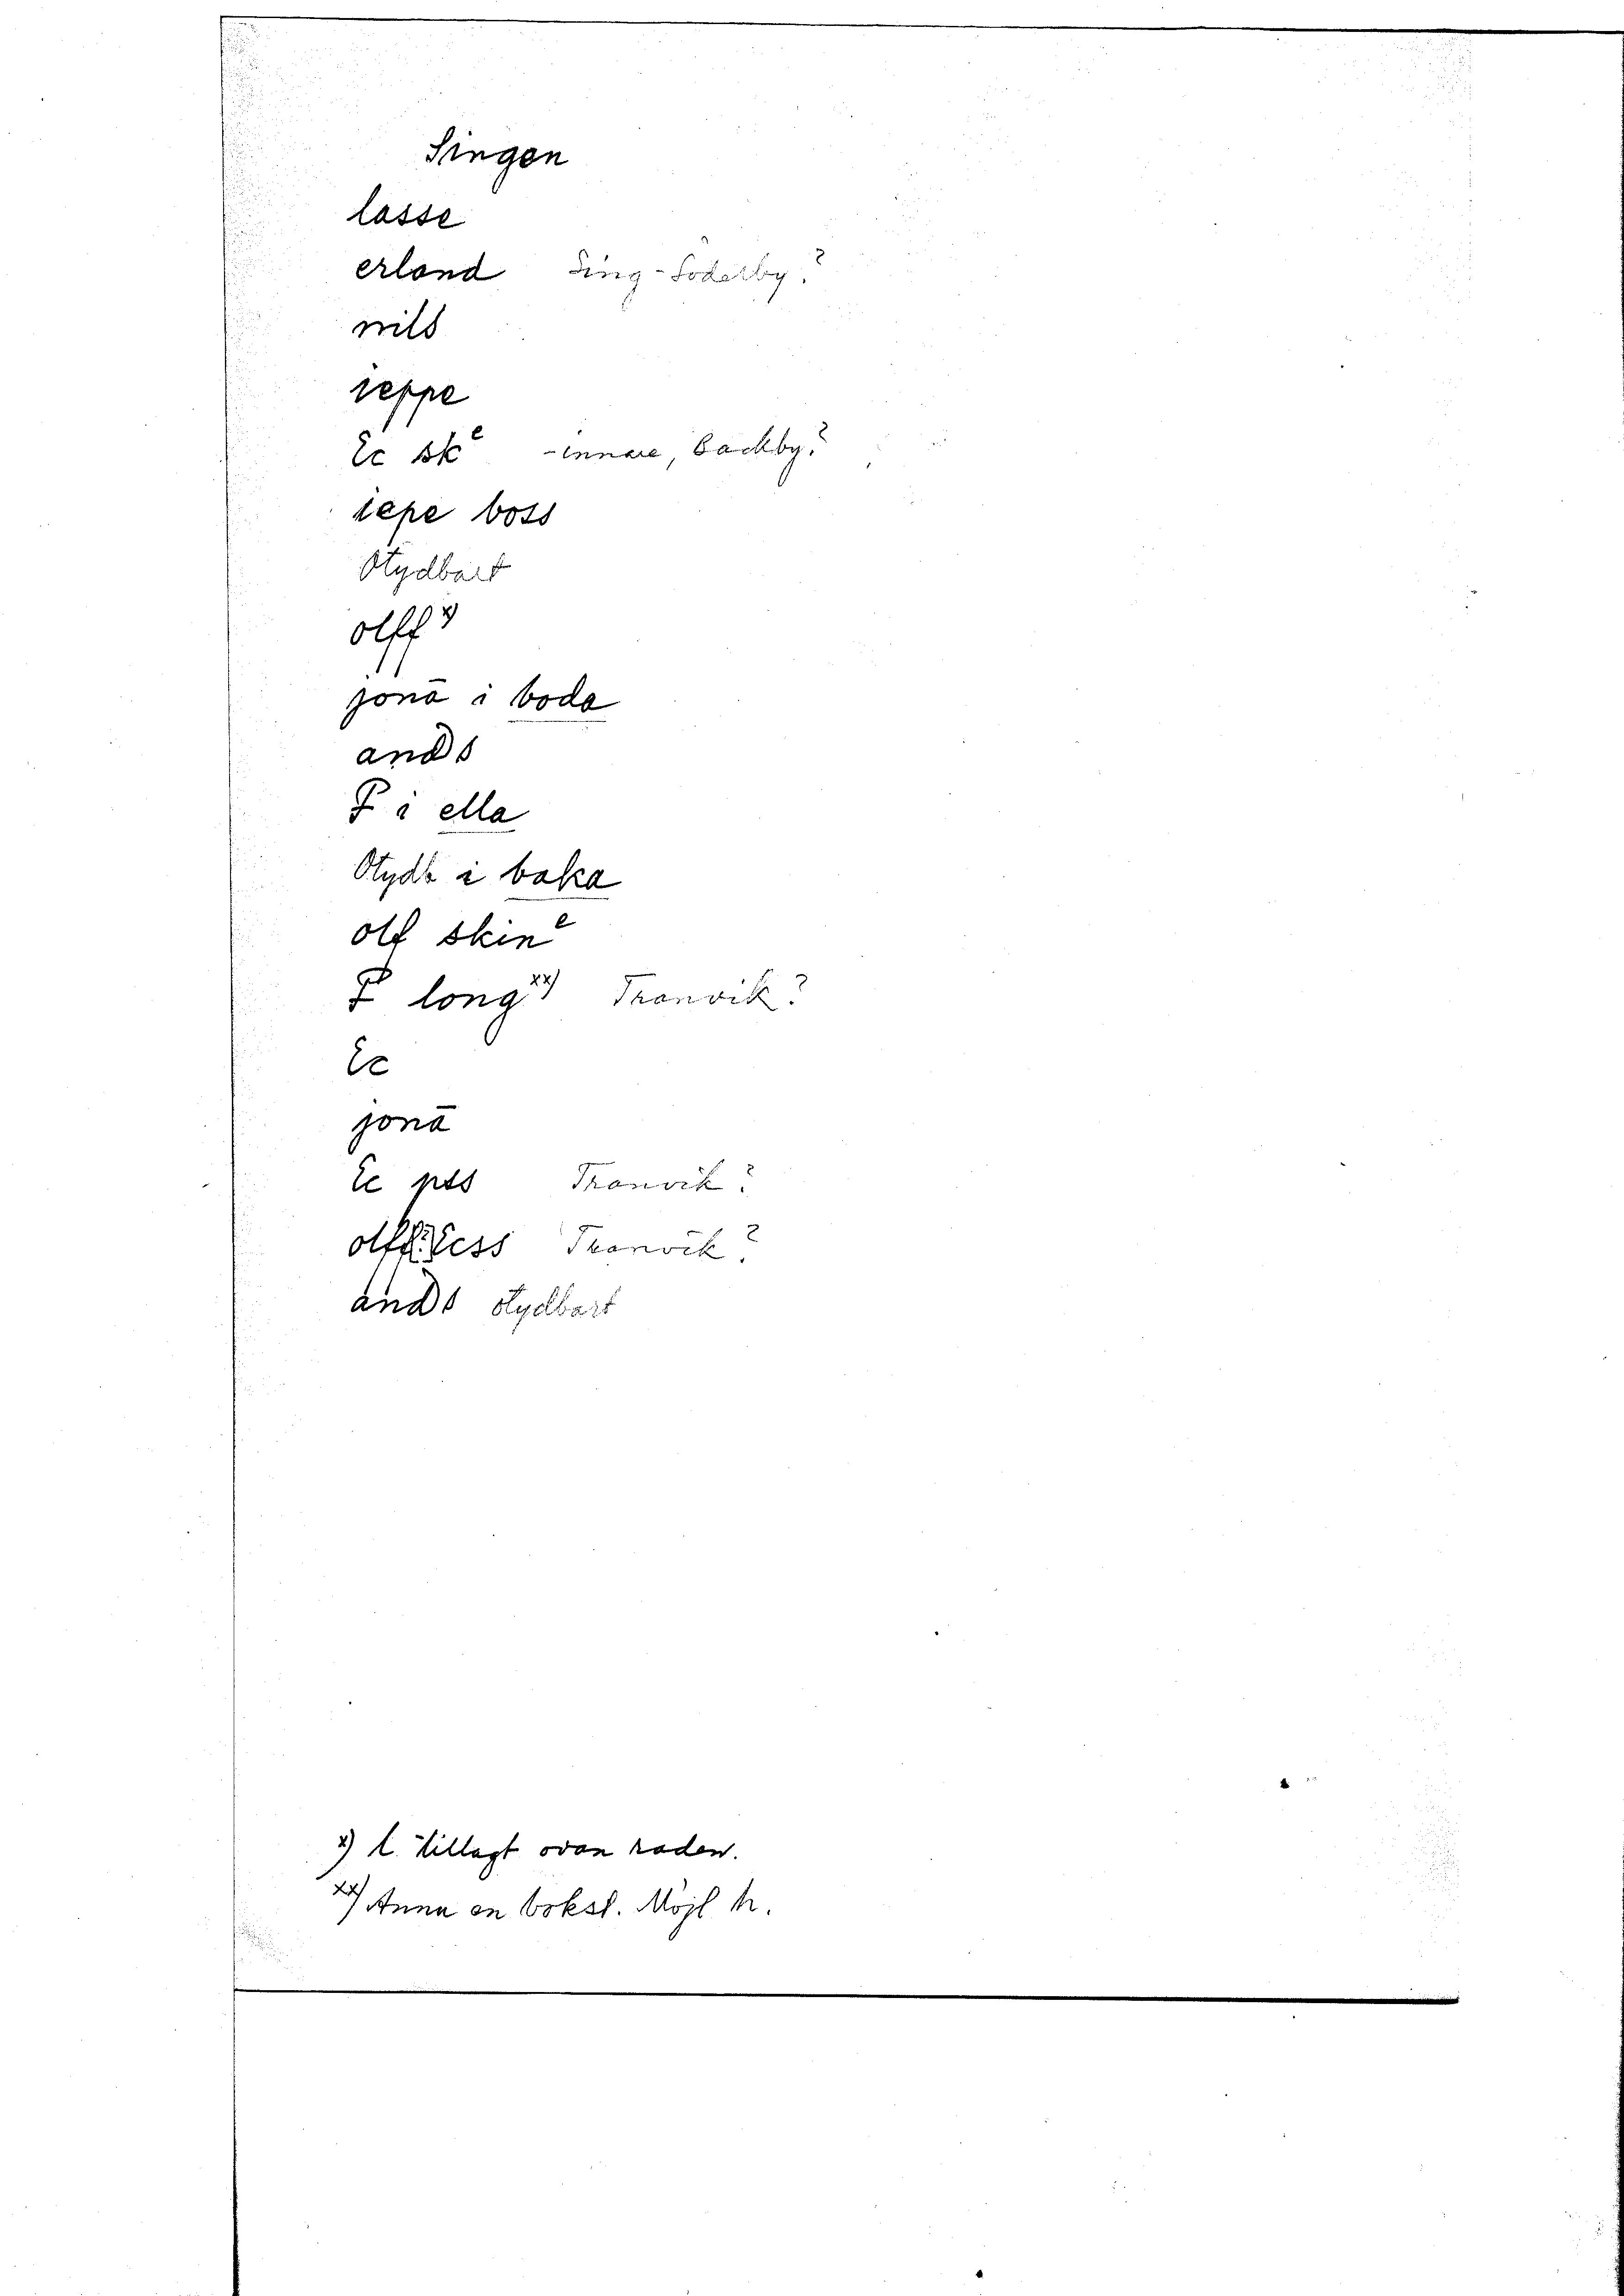 Singen
lasse
erland Sing-Söderby?
nils
ieppe
Ec sk^e -innare, Backby?
iepe boss
Stydbart
olff x)
jonā i boda
ands
P i ella
Stydb i baka
olf skin^e
P long xx) Tranvik?
Ec
jonā
Ec pss Tranvik?
olff less Tranvik?
ands stydbart
x) l. tillagt ovan raden.
xx) Ännu en bokst. Möjl h.